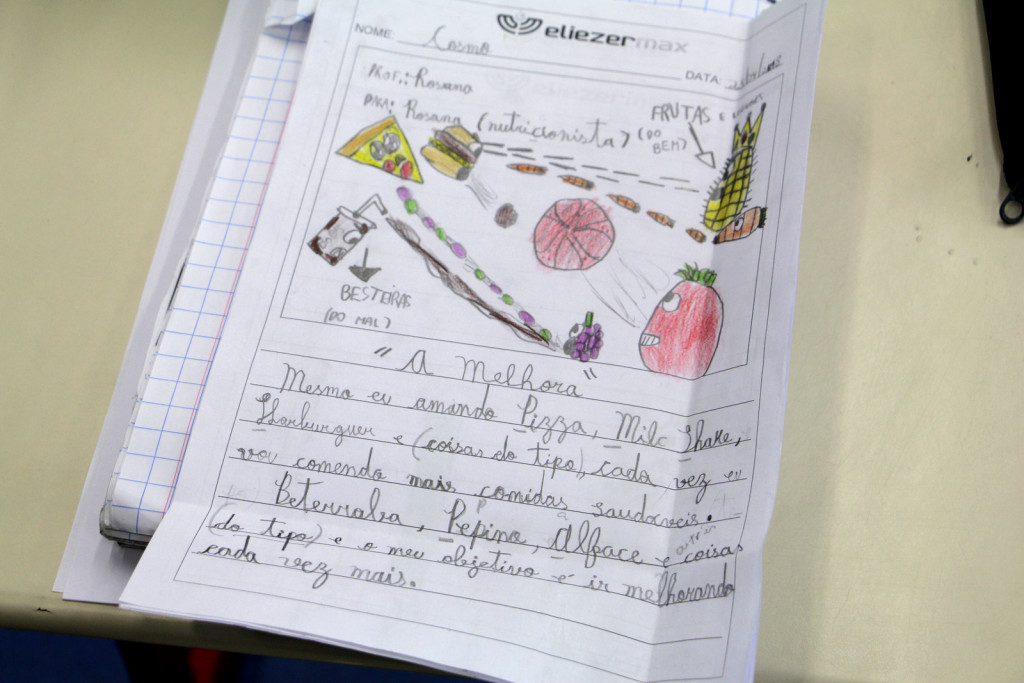 eliezermax
NOME: Cosmo
DATA:
PROF.: Rosana
PARA: Rosana (nutricionista)
FRUTAS E
(DO
BEM)
BESTEIRAS
(DO MAL)
"A Melhora"
Mesmo eu amando Pizza, Milc Shake,
Hamburguer e (coisas do tipo), cada vez eu
vou comendo mais comidas saudáveis.
Beterraba, Pepino, Alface e outras coisas
(do tipo) e o meu objetivo é ir melhorando
cada vez mais.